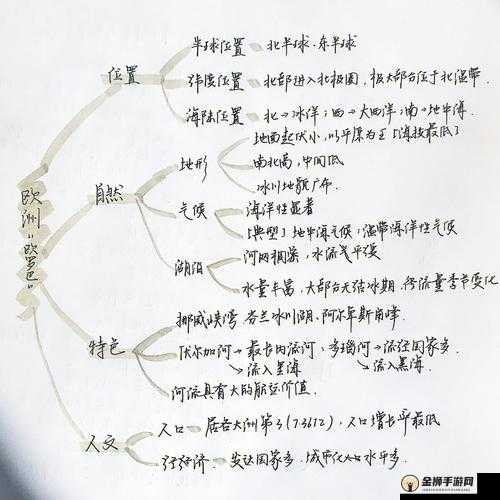 欧洲"欧罗巴"
位置
半球位置 — 北半球、东半球
纬度位置 — 北部进入北极圈，极大部分位于北温带
海陆位置 — 北→冰洋；西→大西洋；南→地中海
自然
地形
地面起伏小，以平原为主［海拔最低］
南北高，中间低
冰川地貌广布.
气候
海洋性显著
［典型］地中海气候；温带海洋性气候
湖泊
河网稠密，水流气平缓
水量丰富，大部分无结冰期，流量季节变化
特色
挪威峡湾 芬兰冰川湖、阿尔卑斯角峰
伏尔加河→最长内流河、多瑙河→流经国家多.
→流入里海
→流入黑海.
河流具有大的航运价值.
人文
人口 — 居各大洲第3(7.36亿)，人口增长率最低
经济：发达国家多、城市化水平多.
金狮手游网